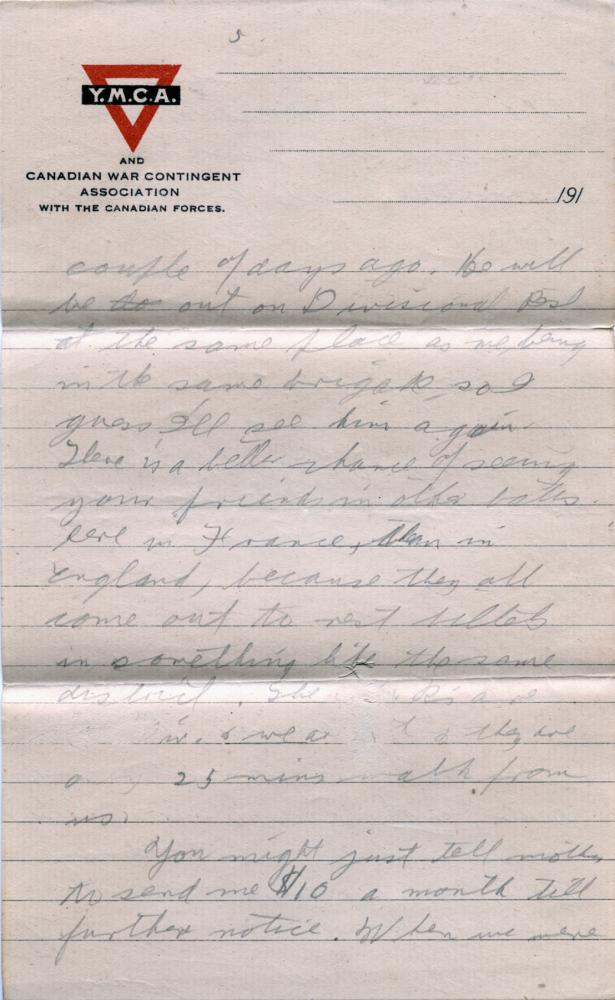 5.
Y.M.C.A.
AND
CANADIAN WAR CONTINGENT
ASSOCIATION
WITH THE CANADIAN FORCES.
191
couple of days ago. He will
be out on Divisional Rest
at the same place as we, being
in the same brigade so I
guess I'll see him again.
There is a better chance of seeing
your friends in other batts.
here in France, than in
England, because they all
come out to rest billets
in something like the same
district. The
they are
25 mins walk from
us.
You might just tell mother
to send me $10 a month till
further notice. When we were